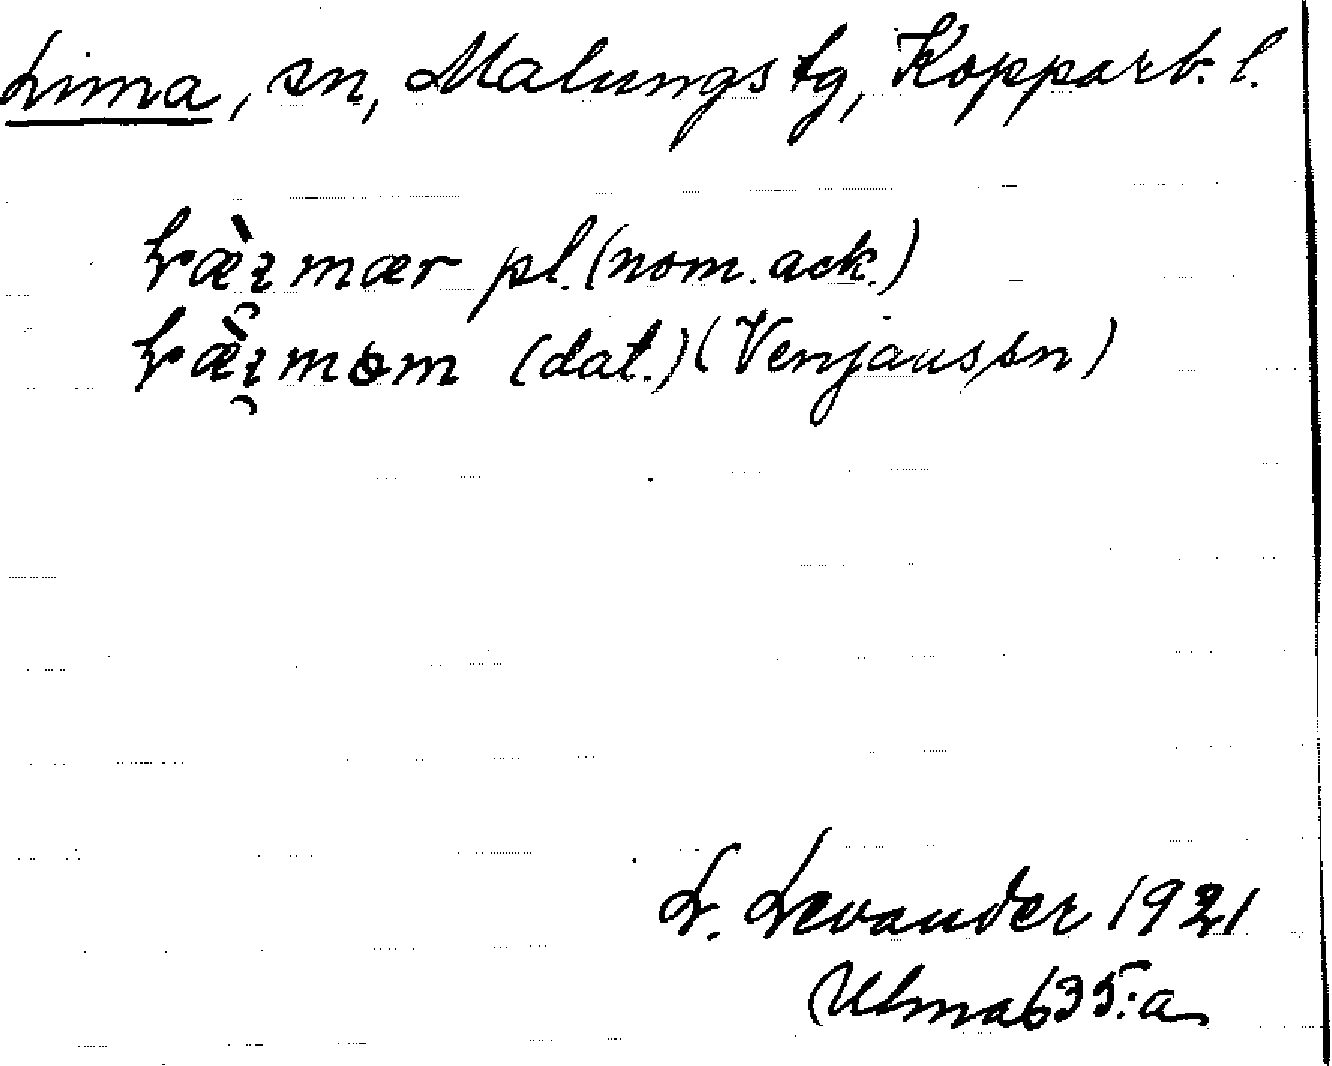 Lima, sn, Malungs tg, Kopparb. l.
pl. (nom. ack.)
(dat.) (Venjans sn)
L. Levander 1921
Ulma 635:a